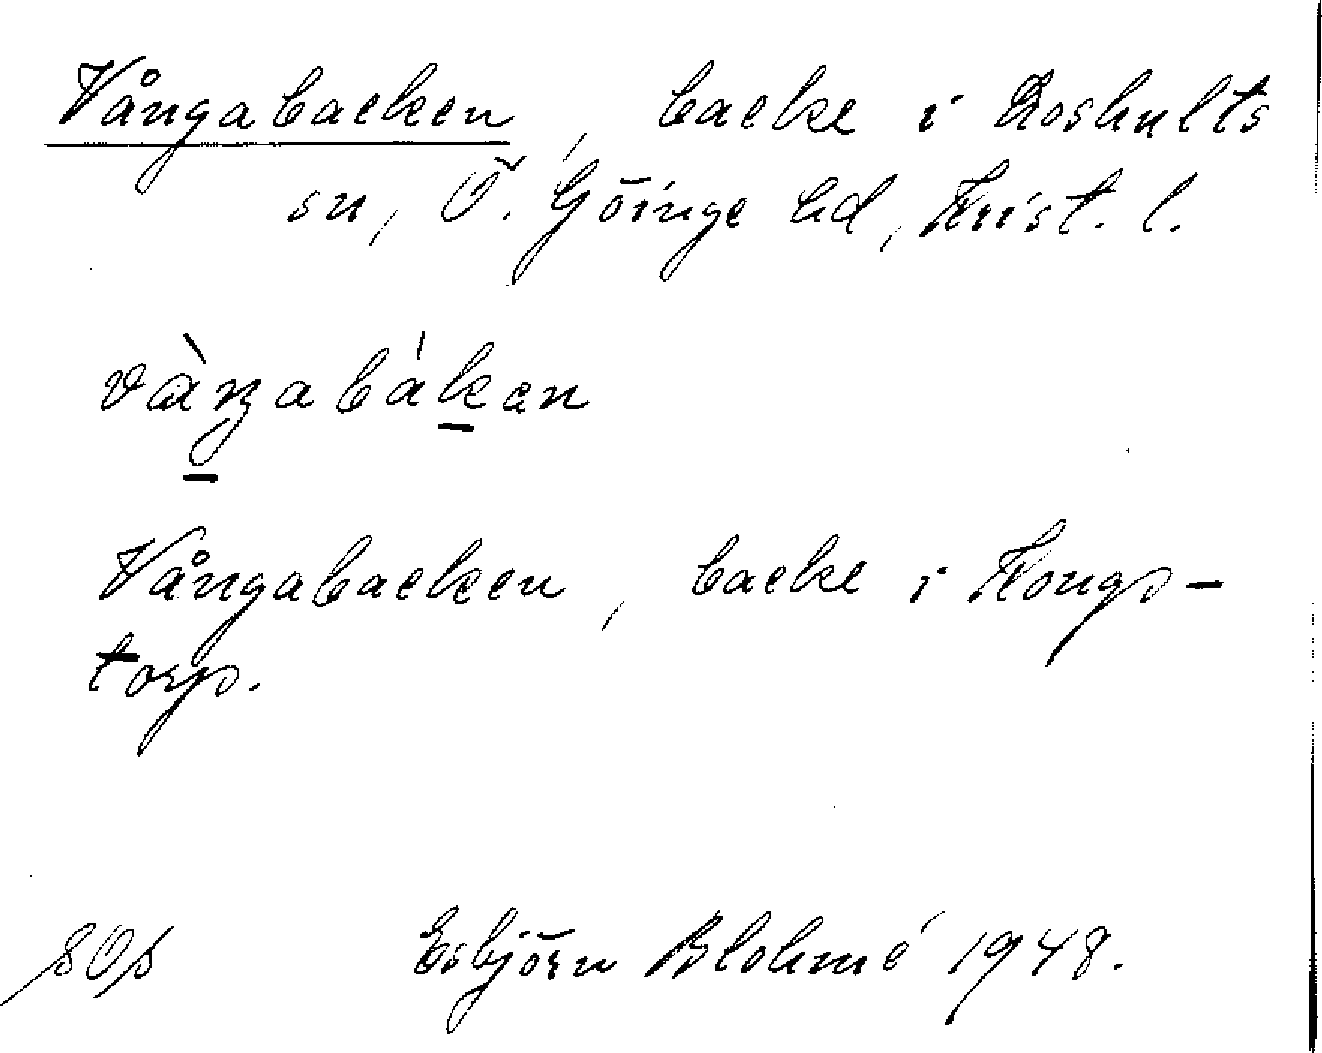 Vångabacken, backe i Loshults
sn, Ö. Göinge hd, Krist. l.
vàŋabákan
Vångabacken, backe i Kongs-
torp.
Esbjörn Blohmé 1948.